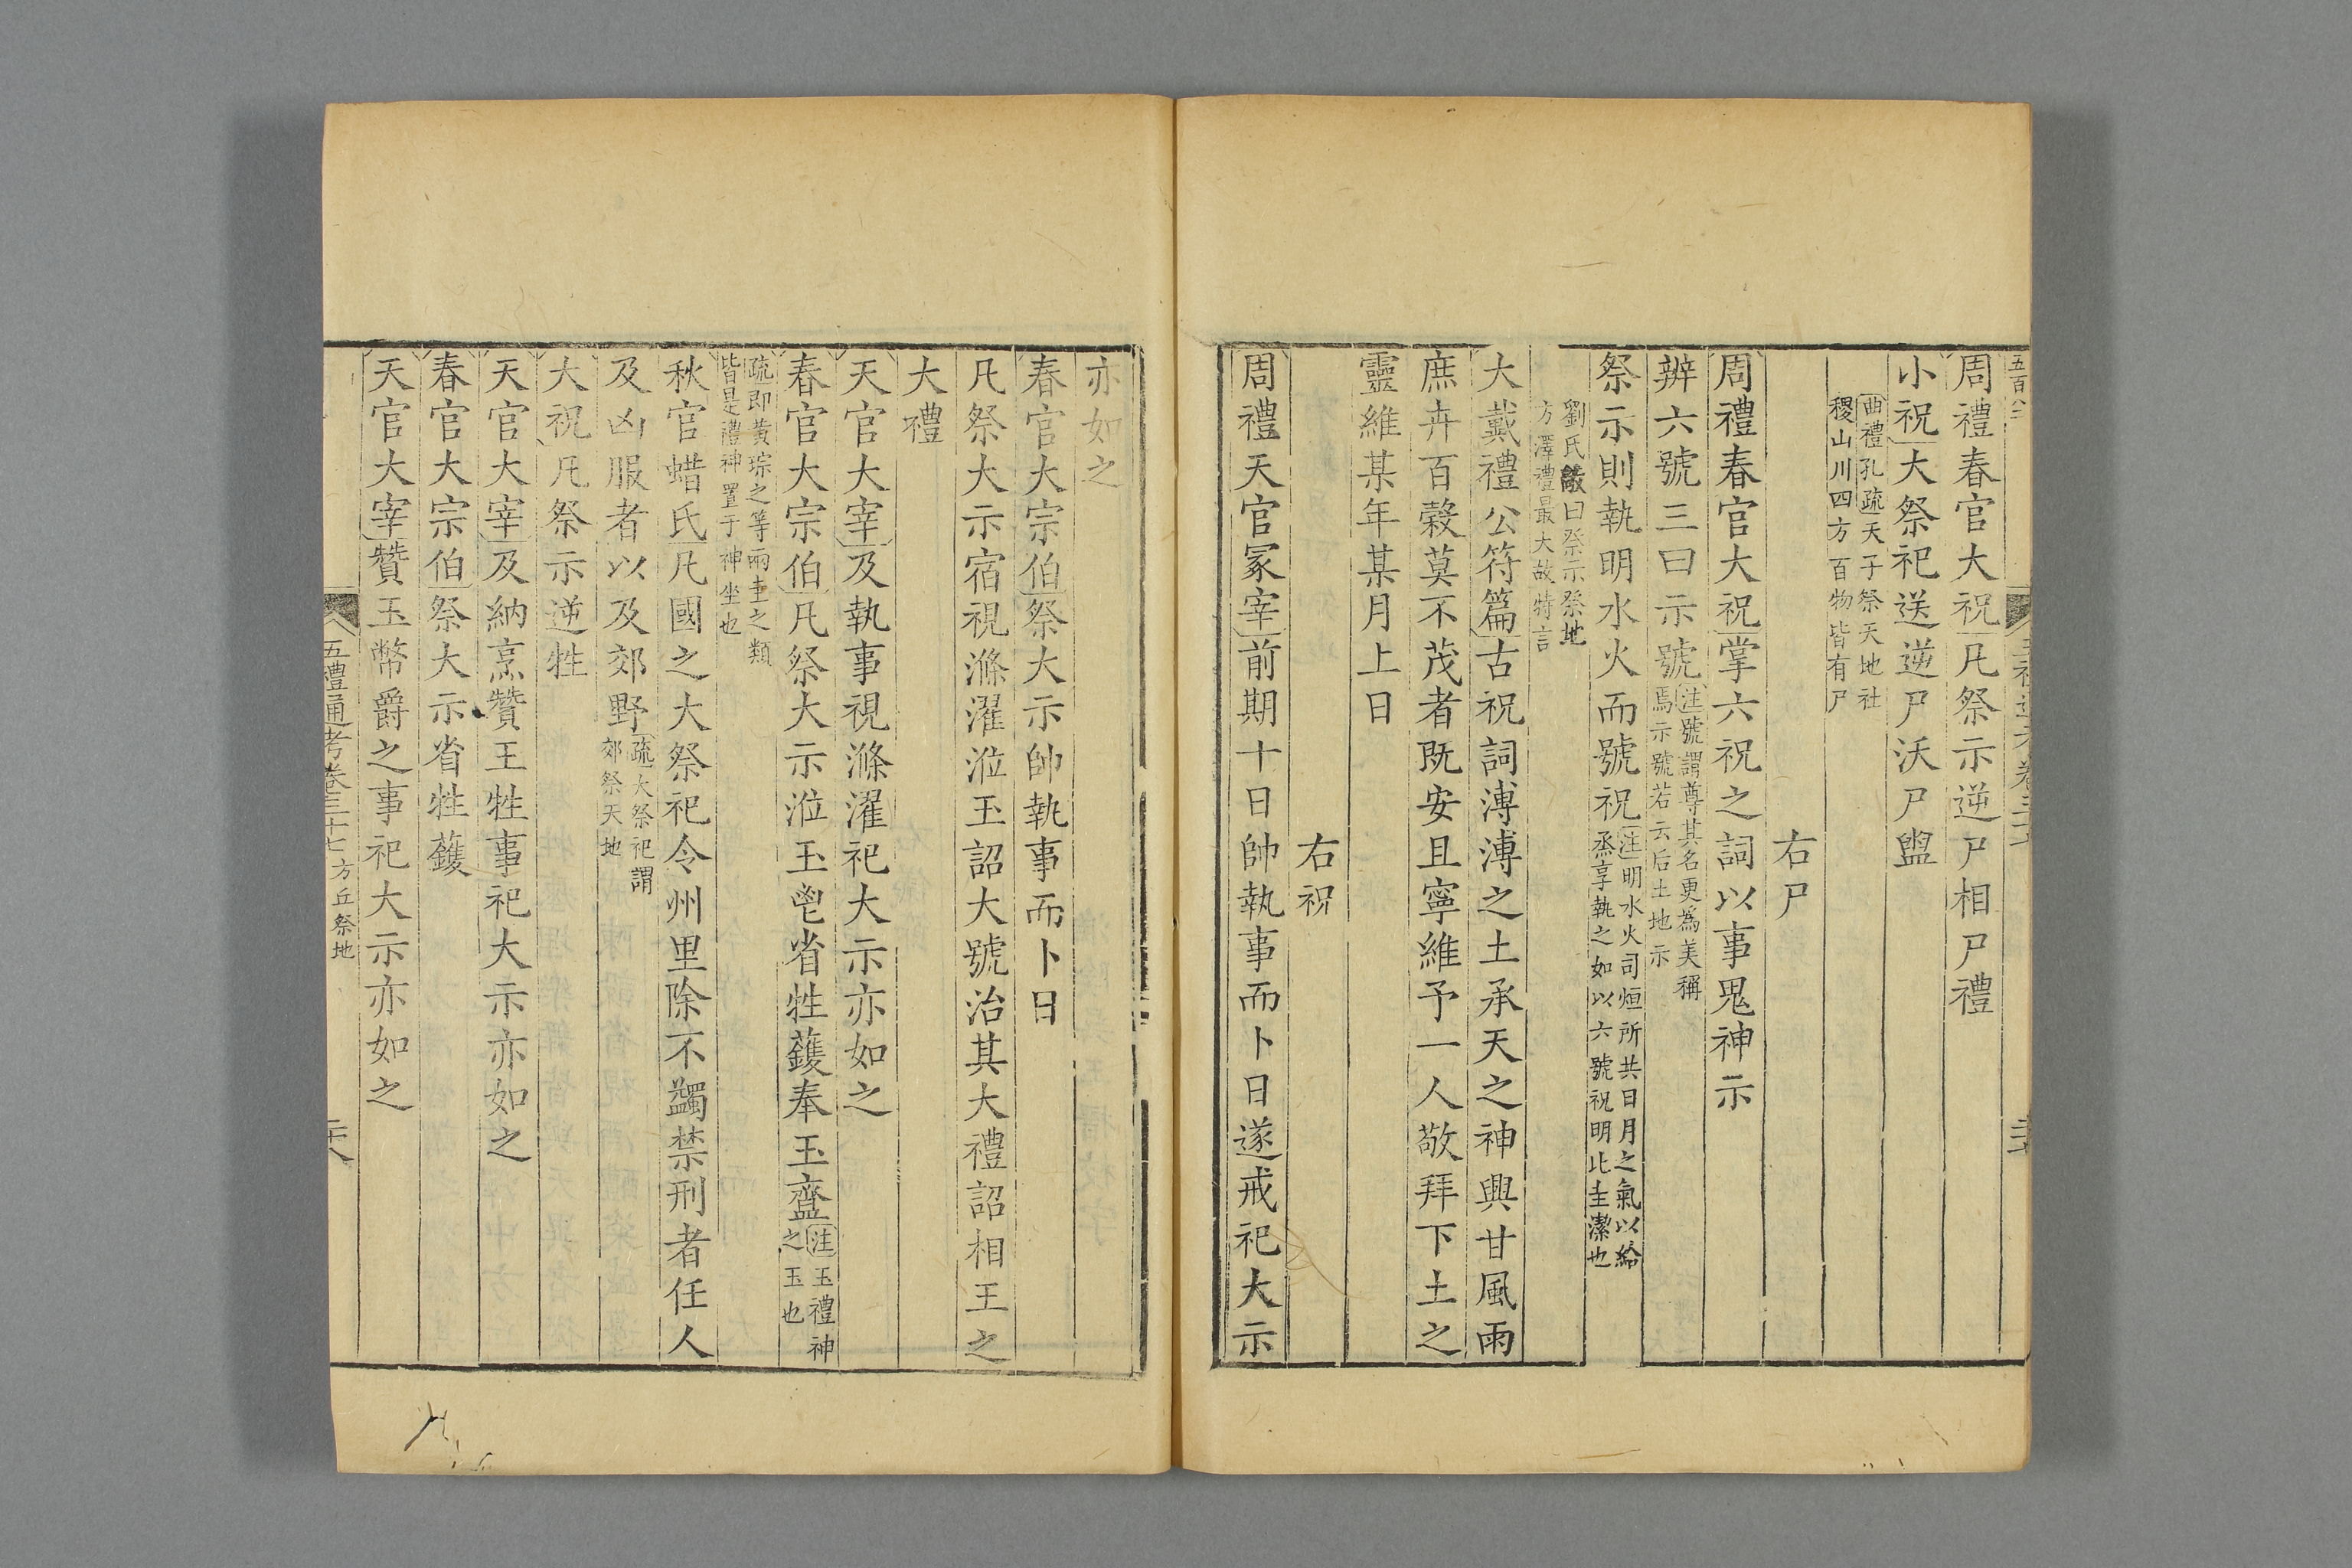 周禮春官大祝凡祭示逆尸相尸禮
小祝大祭祀送逆尸沃尸盥
曲禮孔疏天子祭天地社
稷山川四方百物皆有尸
右尸
周禮春官大祝掌六祝之詞以事鬼神示
辨六號三曰示號注號謂尊其名更為美稱
焉示號若云后土地示
祭示則執明水火而號祝注明水火司烜所共日月之氣以給
烝享執之如以六號祝明此圭潔也
劉氏彝曰祭示祭地
方澤禮最大故特言
大戴禮公符篇古祝詞溥溥之土承天之神興甘風雨
庶卉百榖莫不茂者既安且寧維予一人敬拜下土之
靈維某年某月上日
右祝
周禮天官冢宰前期十日帥執事而卜日遂戒祀大示
亦如之
春官大宗伯祭大示帥執事而卜日
凡祭大示宿視滌濯涖玉詔大號治其大禮詔相王之
大禮
天官大宰及執事視滌濯祀大示亦如之
春官大宗伯凡祭大示涖玉鬯省牲鑊奉玉齍注玉禮神
之玉也
疏即黃琮之等兩圭之類
皆是禮神置于神坐也
秋官蜡氏凡國之大祭祀令州里除不蠲禁刑者任人
及凶服者以及郊野疏大祭祀謂
郊祭天地
大祝凡祭示逆牲
天官大宰及納烹贊王牲事祀大示亦如之
春官大宗伯祭大示省牲鑊
天官大宰贊玉幣爵之事祀大示亦如之
五禮通考卷三十七方丘祭地